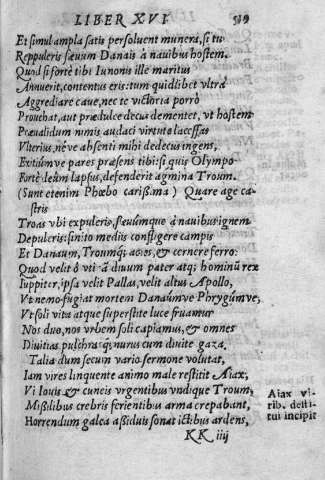 LIBER XVI
519
Et simul ampla satis persoluent munera, si tu
Reppuleris sæuum Danais à nauibus hostem.
Quod si forte tibi Iunonis ille maritus
Annuerit, contentus eris: tum quidlibet vltrà
Aggrediare caue, nec te victoria porrò
Prouehat, aut prædulce decus dementet, vt hostem
Præualidum nimis audaci virtute lacessas
Vlterius, néve absenti mihi dedecus ingens,
Exitiúmve pares præsens tibi: si quis Olympo
Fortè deûm lapsus, defenderit agmina Troum.
(Sunt etenim Phœbo cariss.ma) Quare age ca-
stris
Troas vbi expuleris, sæuúmque à nauibus ignem
Depuleris: sinito mediis confligere campis
Et Danaum, Troumq́; acies, & cernere ferro:
Quod velit ô vti à diuum pater atq; hominū rex
Iuppiter, ipsa velit Pallas, velit altus Apollo,
Vt nemo fugiat mortem Danaúmve Phrygúmve,
Vt soli vita atque superstite luce fruamur
Nos duo, nos vrbem soli capiamus, & omnes
Diuitias pulchras q; nurus cum diuite gaza.
Talia dum secum vario sermone volutat,
Iam vires linquente animo male restitit Aiax,
Vi Iouis & cuneis vrgentibus vndique Troum,
Missilibus crebris ferientibus arma crepabant,
Horrendum galea assiduis sonat ictibus ardens,
Aiax vi-
rib. desti-
tui incipit
KK iiij